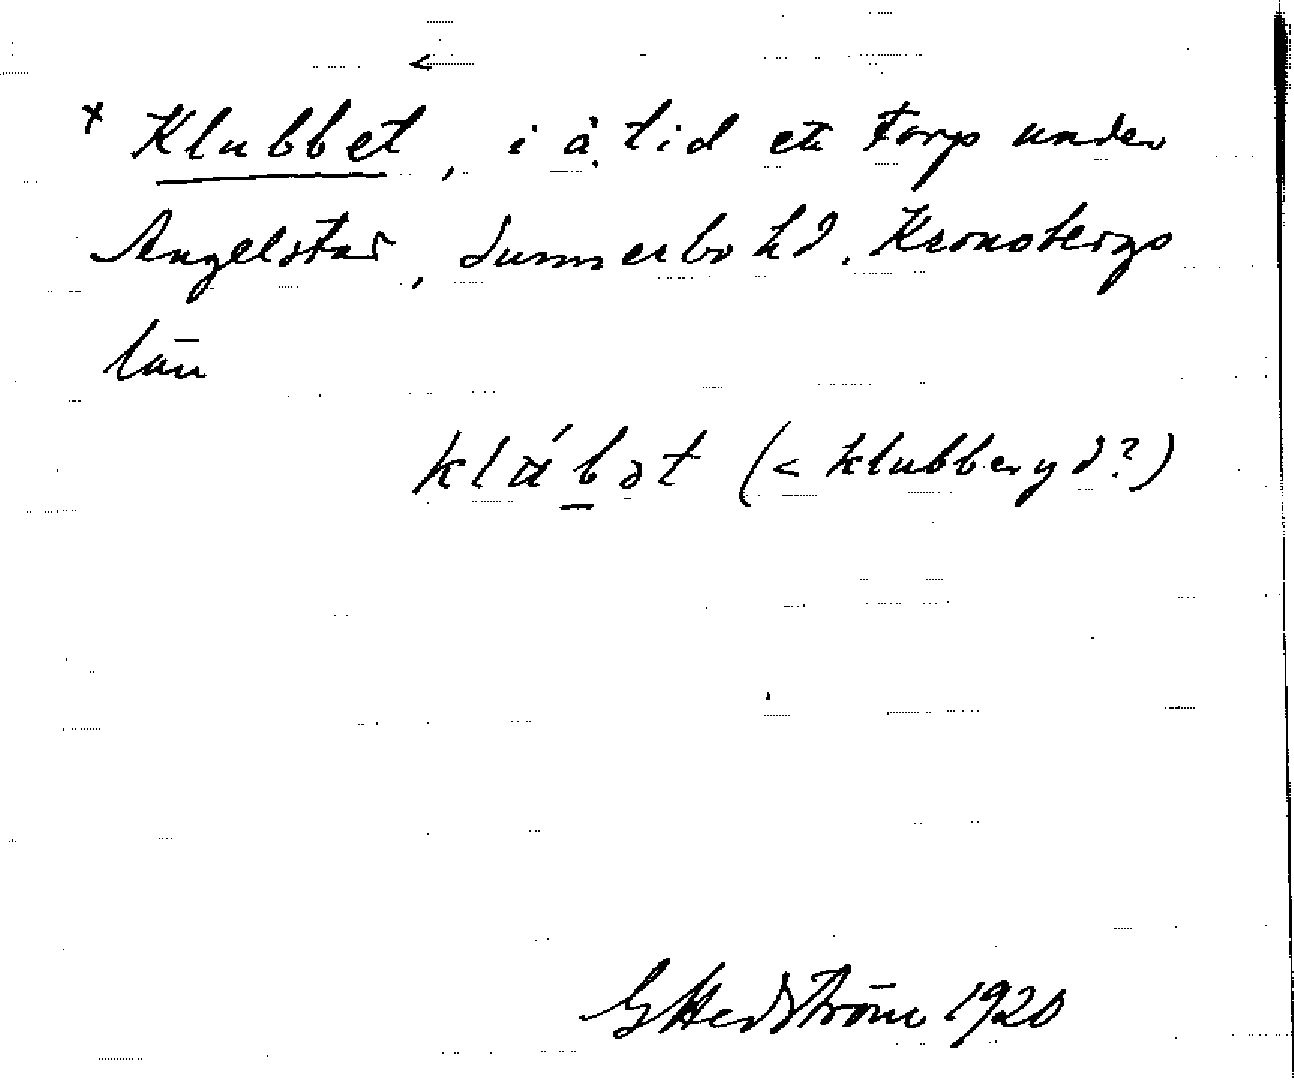 x Klubbet, i ä. tid ett torp under
Angelstad, Sunnerbo hd. Kronobergs
län
klúbət (< klubberyd?)
GHedström 1920